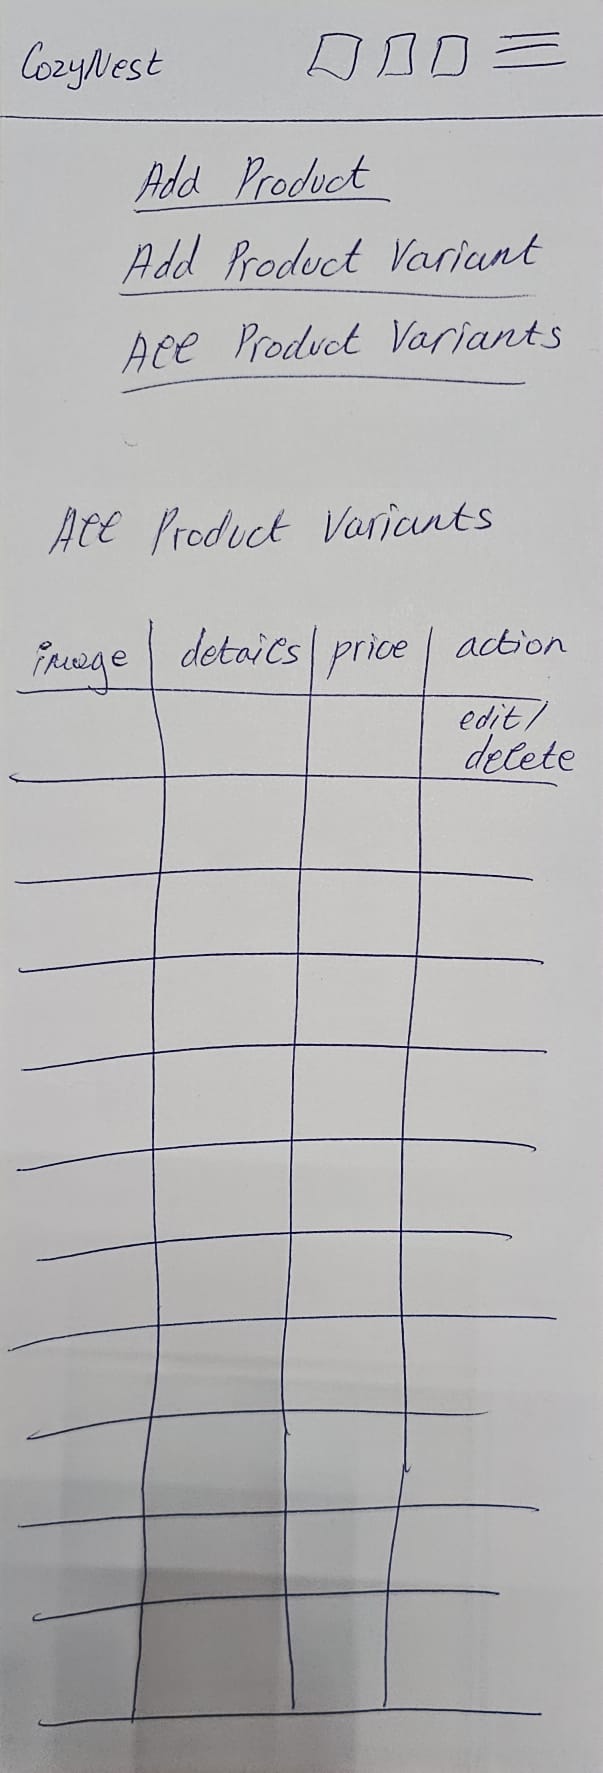 CozyNest
Add Product
Add Product Variant
All Product Variants
All Product Variants
image details price action
edit/
delete